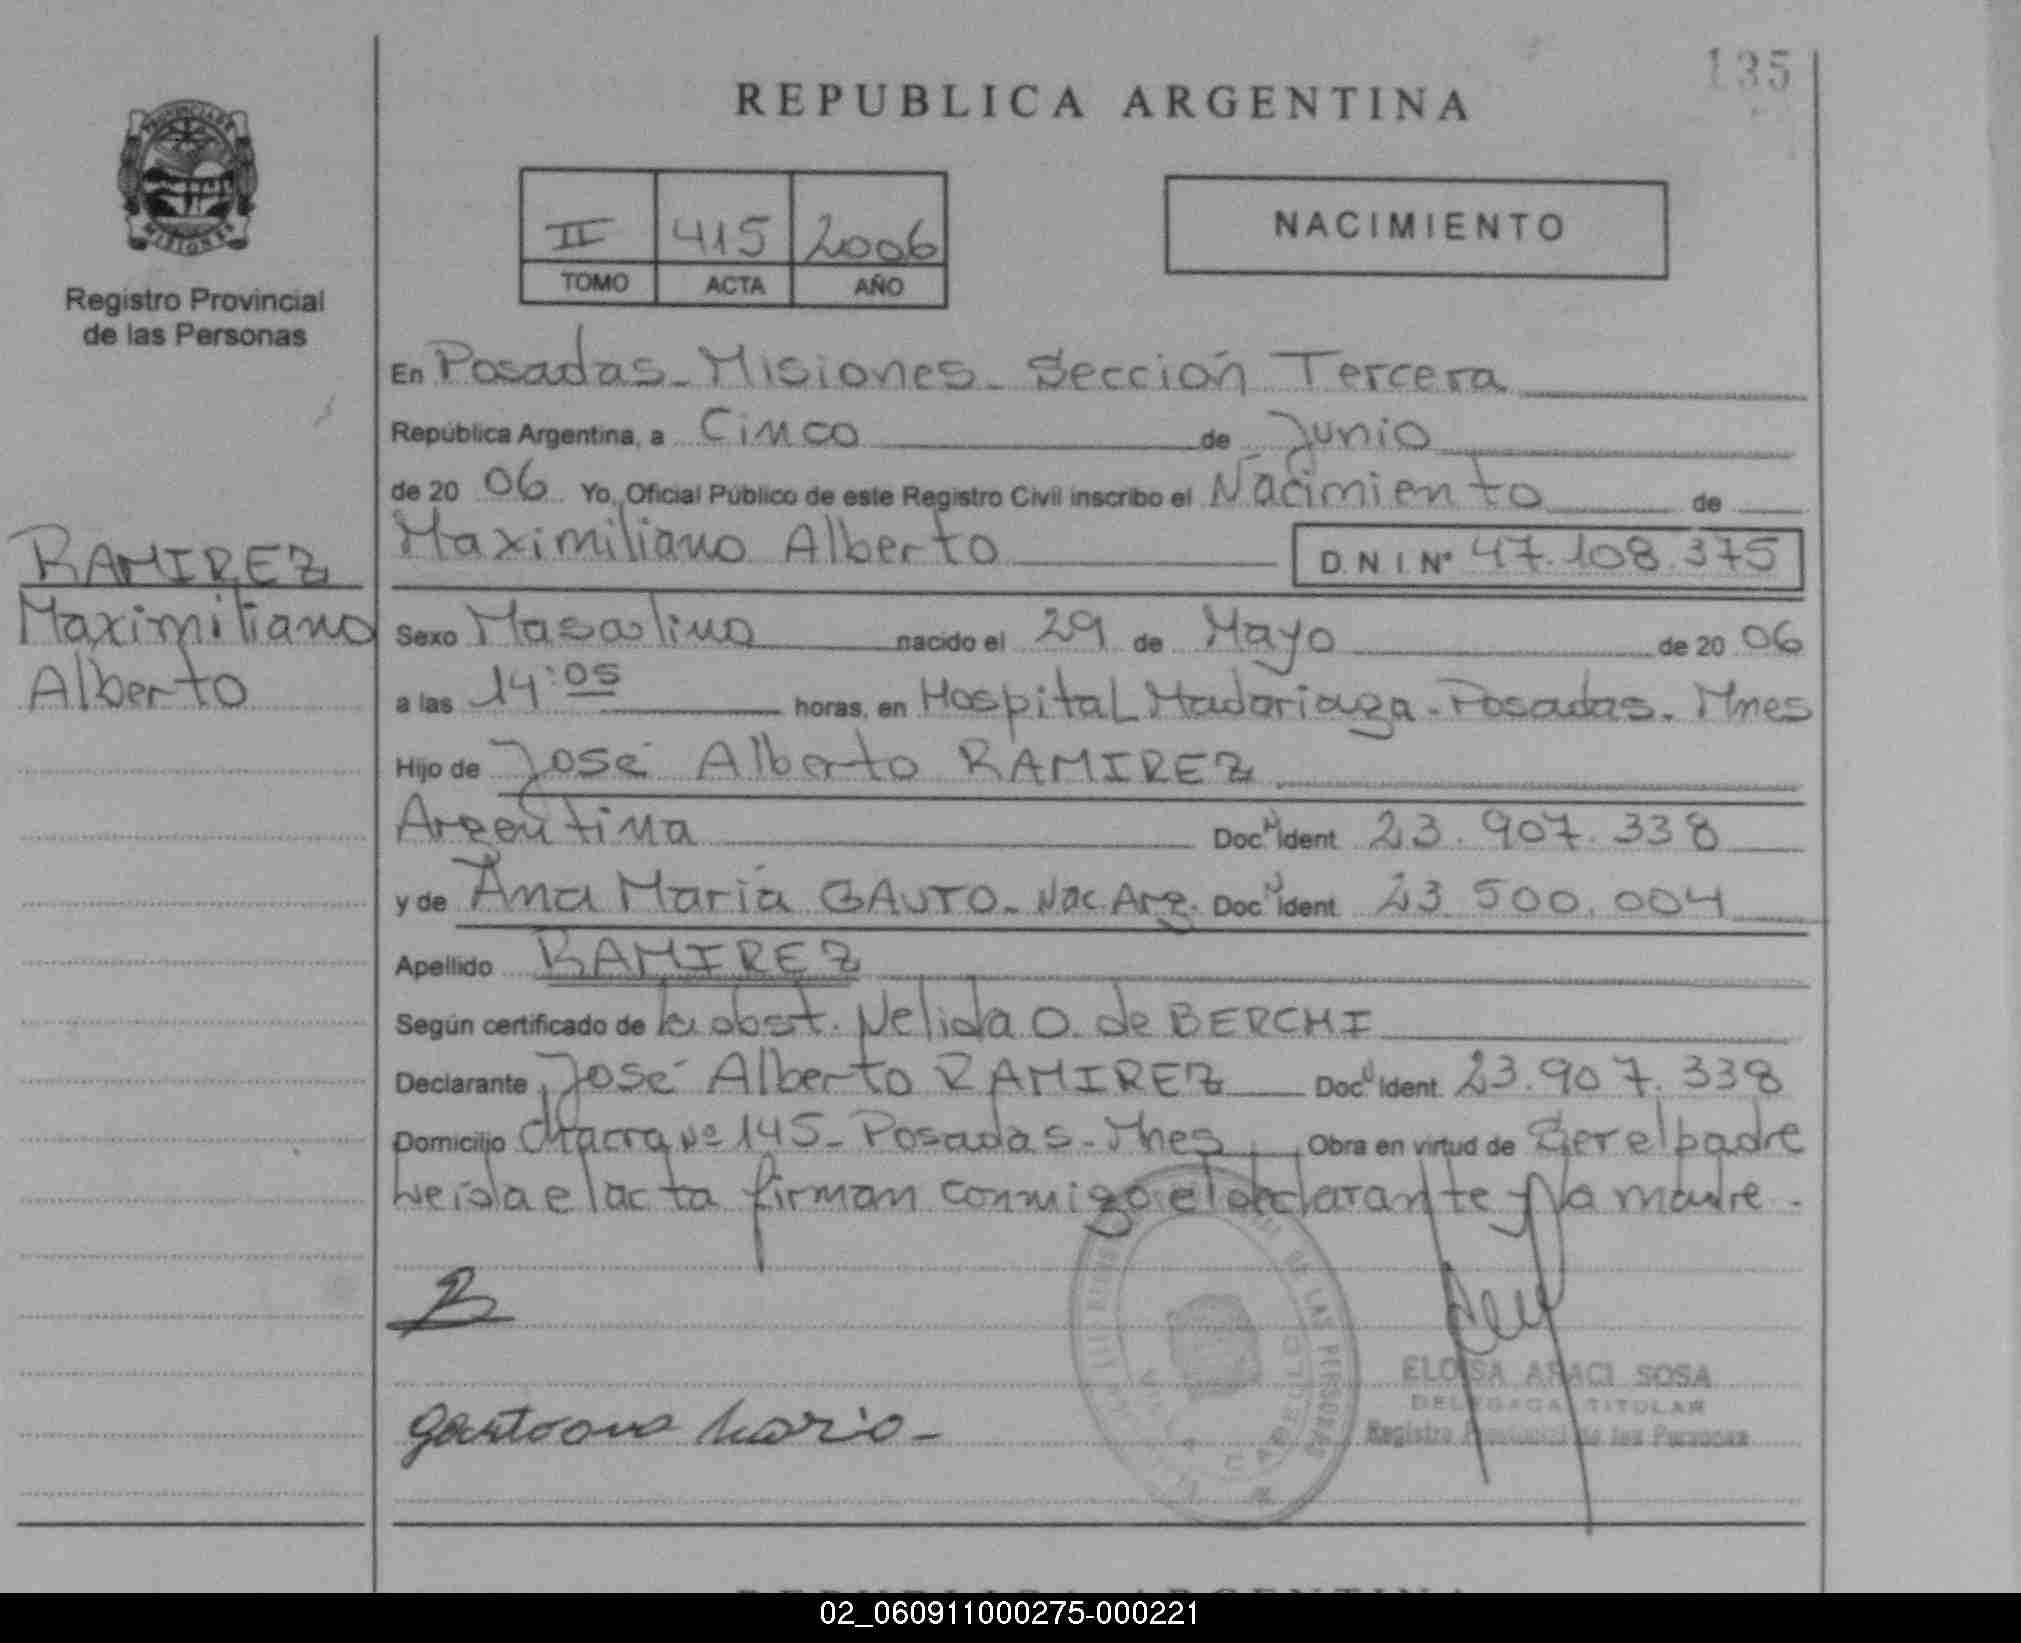 135
REPUBLICA ARGENTINA
PROVINCIA DE
MISIONES
Registro Provincial
de las Personas
II 415 2006
TOMO ACTA AÑO
NACIMIENTO
En Posadas - Misiones - Sección Tercera
República Argentina, a Cinco de Junio
de 20 06 Yo, Oficial Público de este Registro Civil inscribo el Nacimiento de
RAMIREZ
Maximiliano
Alberto
Maximiliano Alberto D.N.I.Nº 47.108.375
Sexo Masculino nacido el 29 de Mayo de 20 06
a las 14:05 horas, en Hospital Madariaga - Posadas - Mnes
Hijo de José Alberto RAMIREZ
Argentina Doc. Ident. 23.907.338
y de Ana María GAUTO - Nac. Arg. Doc. Ident. 23.500.004
Apellido RAMIREZ
Según certificado de la obst. Nelida O. de BERCHI
Declarante José Alberto RAMIREZ Doc. Ident. 23.907.338
Domicilio Chacra Nº 145 - Posadas - Mnes Obra en virtud de Ser el padre
leída el acta firman conmigo el declarante y la madre.
ELOISA ARACI SOSA
DELEGADA TITULAR
Registro Provincial de las Personas
DE LAS PERSONAS
02_060911000275-000221